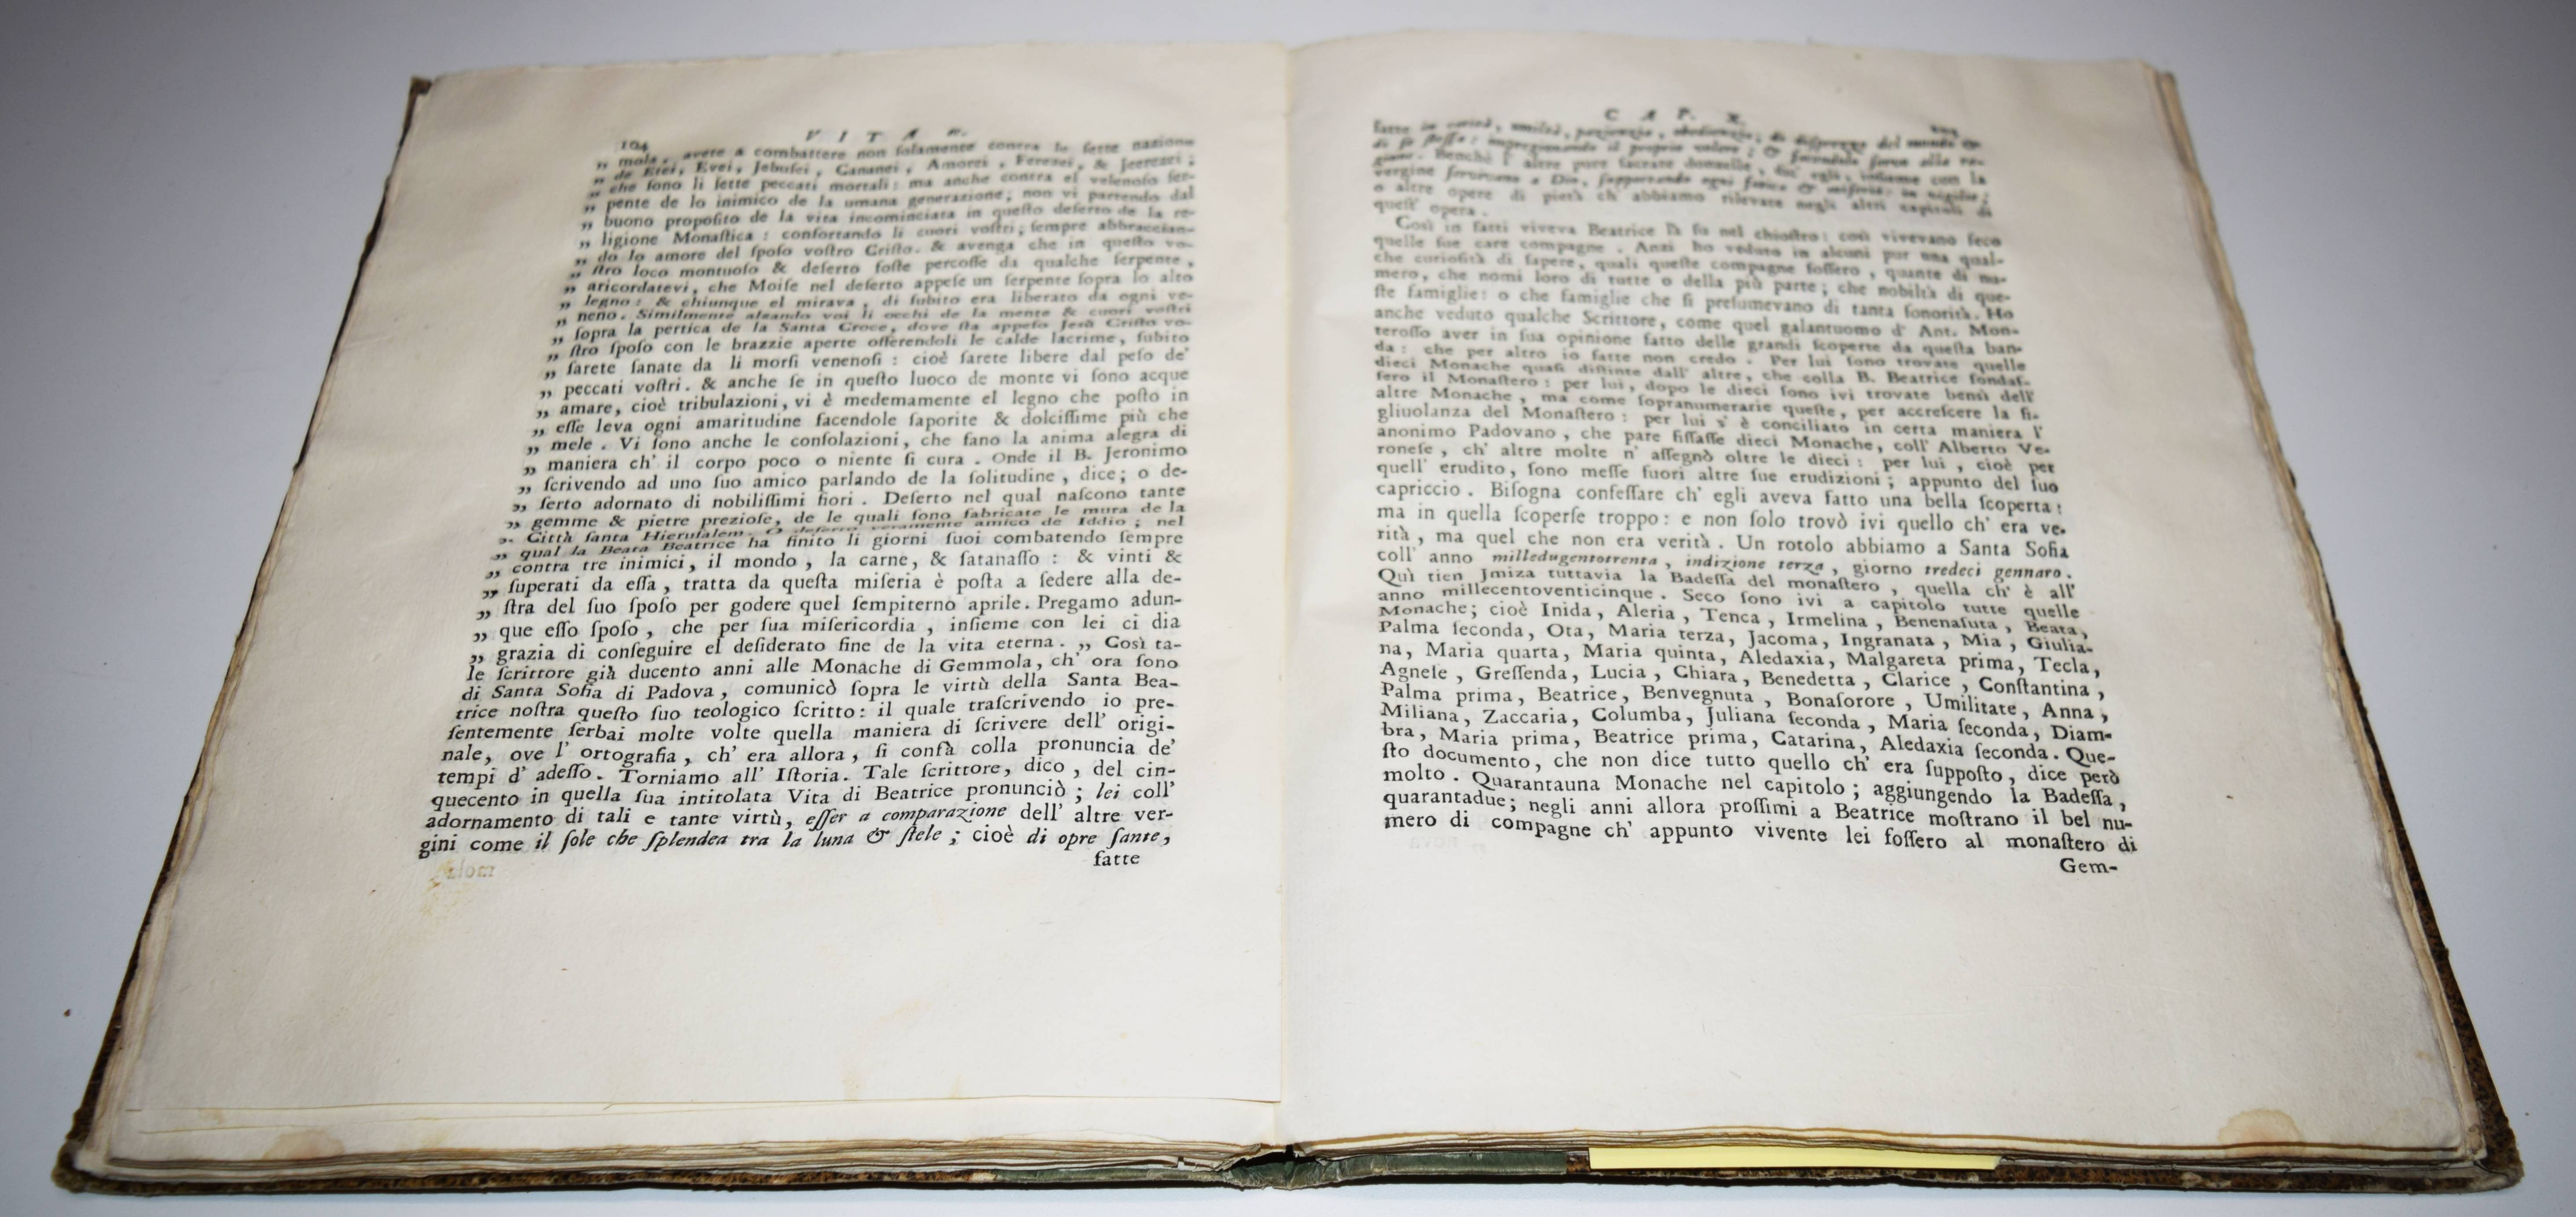 104
V I T A
„ mola, avete a combattere non ſolamente contra le ſette nazione
„ de Etei, Evei, Jebuſei, Cananei, Amorei, Fereſei, &
„ che ſono li ſette peccati mortali: ma anche contra el velenoſo ſer-
„ pente de lo inimico de la umana generazione; non vi partendo dal
„ buono propoſito de la vita incominciata in queſto deſerto de la re-
„ ligione Monaſtica: confortando li cuori voſtri; ſempre abbraccian-
„ do lo amore del ſpoſo voſtro Criſto. & avenga che in queſto vo-
„ ſtro loco montuoſo & deſerto foſte percoſſe da qualche ſerpente,
„ aricordatevi, che Moiſe nel deſerto appeſe un ſerpente ſopra lo alto
„ legno: & chiunque el mirava, di ſubito era liberato da ogni ve-
„ neno. Similmente alzando voi li occhi de la mente & cuori voſtri
„ ſopra la pertica de la Santa Croce, dove ſta appeſo Jesù Criſto vo-
„ ſtro ſpoſo con le brazzie aperte offerendoli le calde lacrime, ſubito
„ ſarete ſanate da li morſi venenoſi: cioè ſarete libere dal peſo de'
„ peccati voſtri. & anche ſe in queſto luoco de monte vi ſono acque
„ amare, cioè tribulazioni, vi è medemamente el legno che poſto in
„ eſſe leva ogni amaritudine facendole ſaporite & dolciſſime più che
„ mele. Vi ſono anche le conſolazioni, che fano la anima alegra di
„ maniera ch' il corpo poco o niente ſi cura. Onde il B. Jeronimo
„ ſcrivendo ad uno ſuo amico parlando de la ſolitudine, dice; o de-
„ ſerto adornato di nobiliſſimi fiori. Deſerto nel qual naſcono tante
„ gemme & pietre precioſe, de le quali ſono fabricate le mura de la
„ Città ſanta Hieruſalem. O deſerto veramente amico de Iddio; nel
„ qual la Beata Beatrice ha finito li giorni ſuoi combatendo ſempre
„ contra tre inimici, il mondo, la carne, & ſatanaſſo: & vinti &
„ ſuperati da eſſa, tratta da queſta miſeria è poſta a ſedere alla de-
„ ſtra del ſuo ſpoſo per godere quel ſempiterno aprile. Pregamo adun-
„ que eſſo ſpoſo, che per ſua miſericordia, inſieme con lei ci dia
„ grazia di conſeguire el deſiderato fine de la vita eterna. „ Così ta-
le ſcrittore già ducento anni alle Monache di Gemmola, ch' ora ſono
di Santa Sofia di Padova, comunicò ſopra le virtù della Santa Bea-
trice noſtra queſto ſuo teologico ſcritto: il quale traſcrivendo io pre-
ſentemente ſerbai molte volte quella maniera di ſcrivere dell' origi-
nale, ove l' ortografia, ch' era allora, ſi confà colla pronuncia de'
tempi d' adeſſo. Torniamo all' Iſtoria. Tale ſcrittore, dico, del cin-
quecento in quella ſua intitolata Vita di Beatrice pronunciò; lei coll'
adornamento di tali e tante virtù, eſſer a comparazione dell' altre ver-
gini come il ſole che ſplendea tra la luna & ſtele; cioè di opre ſante,
fatte
C A P. X.
fatte in carità, umiltà, pazienzia, obedienzia, & diſprezzo del mondo &
di ſe ſteſſa: il proprio volere; & facendoſi ſerva alle re-
Benchè l' altre pure ſacrate donzelle, inſieme con la
vergine ſervivano a Dio, ſupportando ogni fatica &
o altre opere di pietà ch' abbiamo rilevate negli altri capitoli di
queſt' opera.
Così in fatti viveva Beatrice là ſu nel chioſtro: così vivevano ſeco
quelle ſue care compagne. Anzi ho veduto in alcuni pur una qual-
che curioſità di ſapere, quali queſte compagne foſſero, quante di nu-
mero, che nomi loro di tutte o della più parte; che nobiltà di que-
ſte famiglie: o che famiglie che ſi preſumevano di tanta ſonorità. Ho
anche veduto qualche Scrittore, come quel galantuomo d' Ant. Mon-
teroſſo aver in ſua opinione fatto delle grandi ſcoperte da queſta ban-
da: che per altro io fatte non credo. Per lui ſono trovate quelle
dieci Monache quaſi diſtinte dall' altre, che colla B. Beatrice fondaſ-
ſero il Monaſtero: per lui, dopo le dieci ſono ivi trovate bensì dell'
altre Monache, ma come ſopranumerarie queſte, per accreſcere la fi-
gliuolanza del Monaſtero: per lui s' è conciliato in certa maniera l'
anonimo Padovano, che pare fiſſaſſe dieci Monache, coll' Alberto Ve-
roneſe, ch' altre molte n' aſſegnò oltre le dieci: per lui, cioè per
quell' erudito, ſono meſſe fuori altre ſue erudizioni; appunto del ſuo
capriccio. Biſogna confeſſare ch' egli aveva fatto una bella ſcoperta:
ma in quella ſcoperſe troppo: e non ſolo trovò ivi quello ch' era ve-
rità, ma quel che non era verità. Un rotolo abbiamo a Santa Sofia
coll' anno milledugentotrenta, indizione terza, giorno tredeci gennaro.
Quì tien Jmiza tuttavia la Badeſſa del monaſtero, quella ch' è all'
anno millecentoventicinque. Seco ſono ivi a capitolo tutte quelle
Monache; cioè Inida, Aleria, Tenca, Irmelina, Benenaſuta, Beata,
Palma ſeconda, Ota, Maria terza, Jacoma, Ingranata, Mia, Giulia-
na, Maria quarta, Maria quinta, Aledaxia, Malgareta prima, Tecla,
Agneſe, Greſſenda, Lucia, Chiara, Benedetta, Clarice, Conſtantina,
Palma prima, Beatrice, Benvegnuta, Bonaſorore, Umilitate, Anna,
Miliana, Zaccaria, Columba, Juliana ſeconda, Maria ſeconda, Diam-
bra, Maria prima, Beatrice prima, Catarina, Aledaxia ſeconda. Que-
ſto documento, che non dice tutto quello ch' era ſuppoſto, dice però
molto. Quarantauna Monache nel capitolo; aggiungendo la Badeſſa,
quarantadue; negli anni allora proſſimi a Beatrice moſtrano il bel nu-
mero di compagne ch' appunto vivente lei foſſero al monaſtero di
Gem-